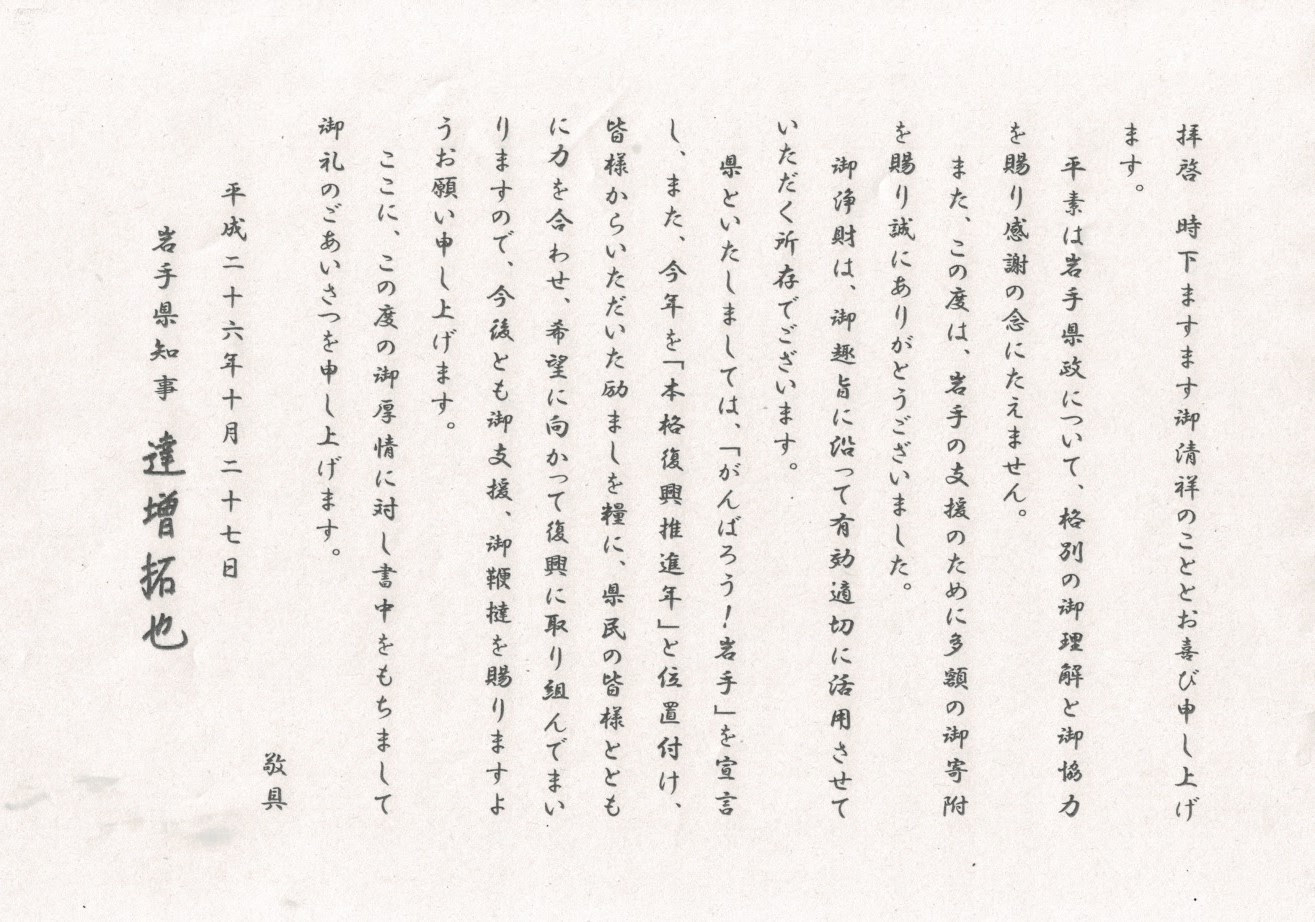 拝啓　時下ますます御清祥のこととお喜び申し上げ
ます。
平素は岩手県政について、格別の御理解と御協力
を賜り感謝の念にたえません。
また、この度は、岩手の支援のために多額の御寄附
を賜り誠にありがとうございました。
御浄財は、御趣旨に沿って有効適切に活用させて
いただく所存でございます。
県といたしましては、「がんばろう！岩手」を宣言
し、また、今年を「本格復興推進年」と位置付け、
皆様からいただいた励ましを糧に、県民の皆様ととも
に力を合わせ、希望に向かって復興に取り組んでまい
りますので、今後とも御支援、御鞭撻を賜りますよ
うお願い申し上げます。
ここに、この度の御厚情に対し書中をもちまして
御礼のごあいさつを申し上げます。
敬具
平成二十六年十月二十七日
岩手県知事　達増拓也